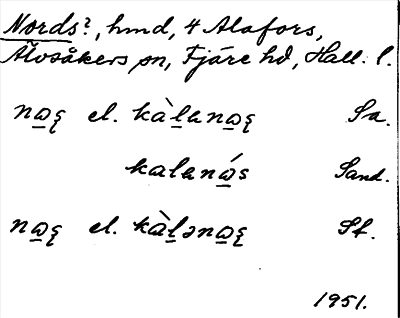 Nords?, hmd, 4 Alafors,
Älvsåkers sn, Fjäre hd, Hall. l.
nω̲ʂ el. kàl̲anω̲ʂ Sa.
kalanώ̲s Sand.
nω̲ʂ el. kàl̲ənω̲ʂ Sf.
1951.